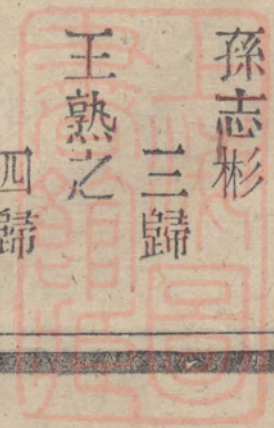 孫志彬
三歸
王熟之
四歸